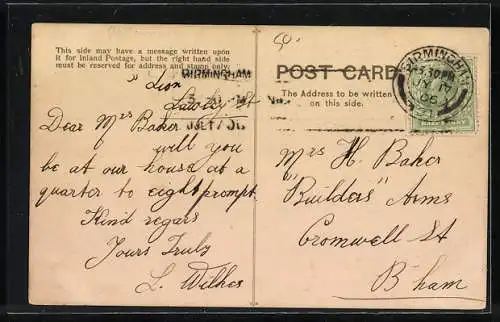 This side may have a message written upon
it for Inland Postage, but the right hand side
must be reserved for address and stamp only.
BIRMINGHAM
"Lion
Dear Mrs Baker
will you
be at our house at a
quarter to eight prompt.
Kind regars
Yours Truly
L. Wilkes
POST CARD
The Address to be written
on this side.
BIRMINGHAM
5.30 PM
06
Mrs H. Baker
"Builders" Arms
Cromwell St
B'ham